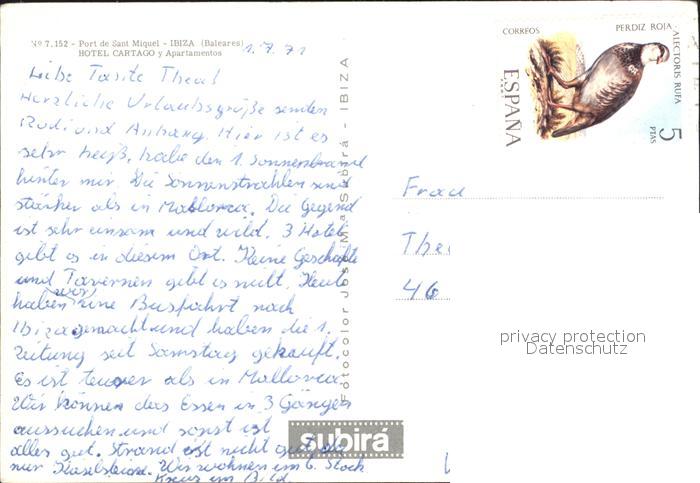 Nº 7.152 - Port de Sant Miquel - IBIZA (Baleares)
HOTEL CARTAGO y Apartamentos
1.7.71
Liebe Tante Thea!
Herzliche Urlaubsgrüße senden
Rudi und Anhang. Hier ist es
sehr heiß, habe den 1. Sonnenbrand
hinter mir. Die Sonnenstrahlen sind
stärker als in Mallorca. Die Gegend
ist sehr einsam und wild. 3 Hotel
gibt es in diesem Ort. Keine Geschäfte
und Tavernen gibt es nicht. Heute
haben wir eine Busfahrt nach
Ibiza gemacht und haben die 1.
Zeitung seit Samstag gekauft.
Es ist teurer als in Mallorca.
Wir können das Essen in 3 Gängen
aussuchen und sonst ist
alles gut. Strand ist nicht gut
nur Kieselsteine. Wir wohnen im 6. Stock
Kreuz im Bild.
Fotocolor José M.ª Subirá - IBIZA
subirá
CORREOS
PERDIZ ROJA - ALECTORIS RUFA
ESPAÑA
5 PTAS
Frau
The
46
privacy protection
Datenschutz